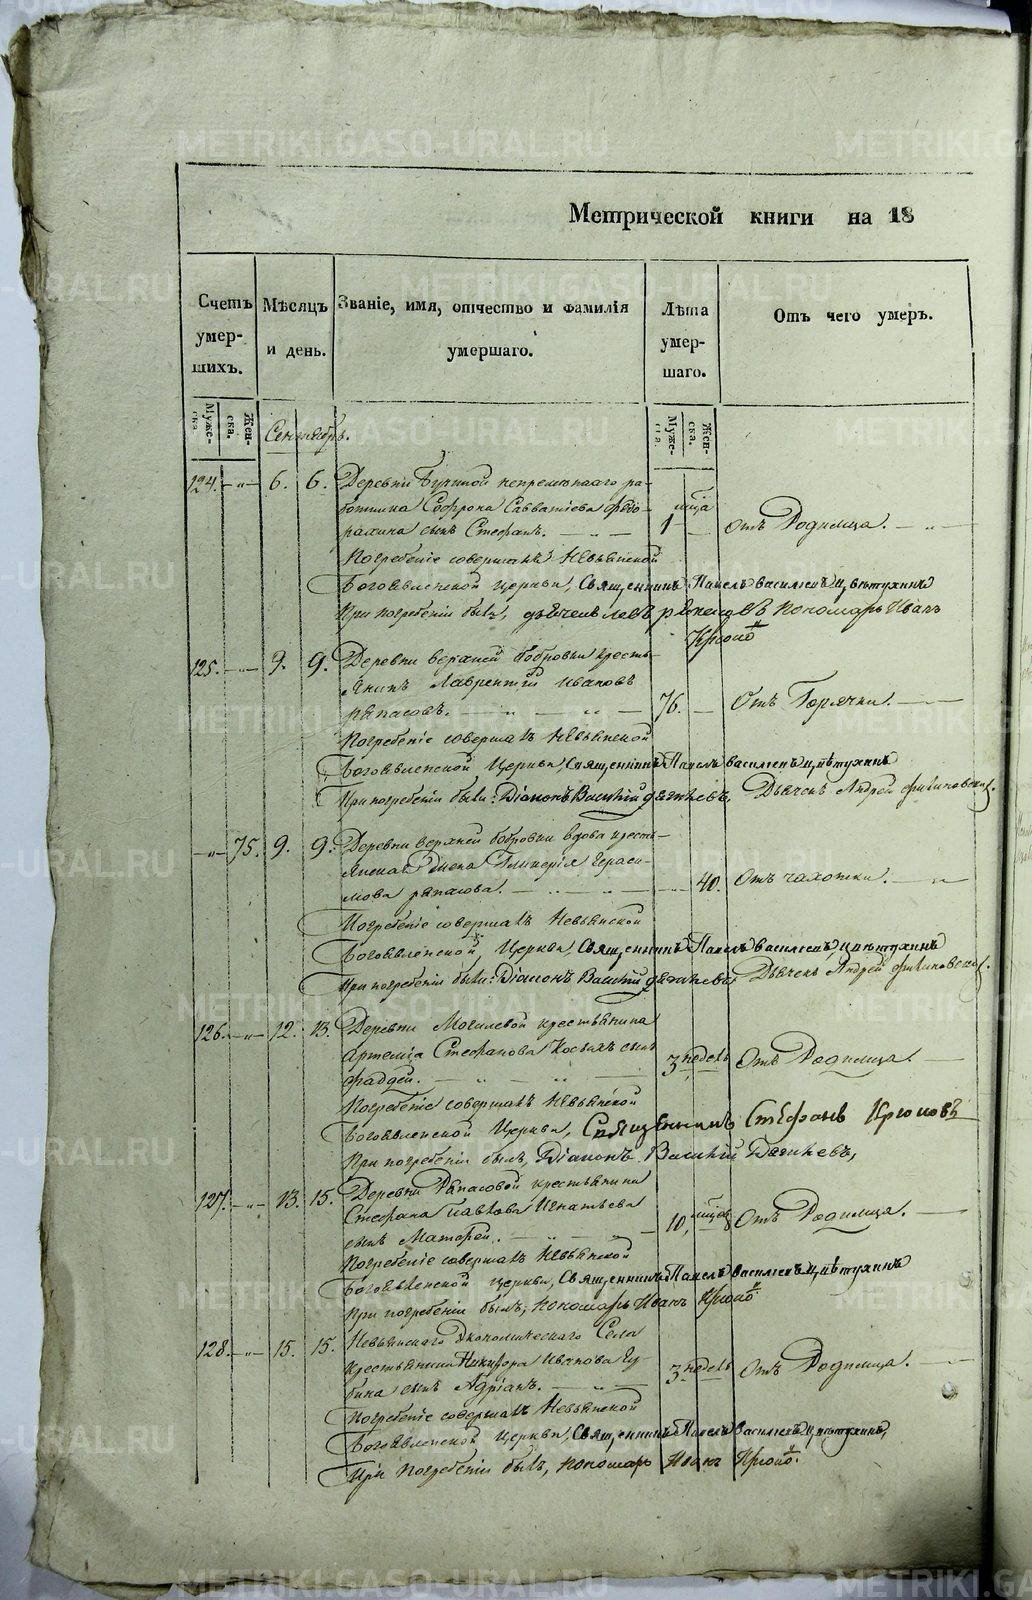 Метрической книги на 18
Счетъ умер-шихъ.
Мѣсяцъ и день.
Званіе, имя, отчество и фамилія умершаго.
Лѣта умер-шаго.
Отъ чего умеръ.
Муже-ска. Жен-ска.
Муже-ска. Жен-ска.
Сентябрь.
124. 6. 6. Деревни непремѣннаго ра-
ботника Софрона Савватіева
сынъ Стефанъ. 1 Отъ Родимца.
Погребеніе совершалъ Невьянской
Богоявленской церкви, Священникъ Павелъ Васильевъ Цвѣтухинъ
При погребеніи былъ, Пономарь Иванъ
125. 9. 9. Деревни верхней Бобровки кресть-
янинъ Лаврентій Ивановъ
Ряпасовъ. 76. Отъ Горячки.
Погребеніе совершалъ Невьянской
Богоявленской Церкви, Священникъ Павелъ Васильевъ Цвѣтухинъ
При погребеніи были: Діаконъ Василій Дягилевъ, Дьячекъ Андрей
75. 9. 9. Деревни верхней Бобровки вдова кресть-
янская жена Гликерія Гераси-
мова Ряпасова. 40. Отъ чахотки.
Погребеніе совершалъ Невьянской
Богоявленской, Церкви, Священникъ Павелъ Васильевъ Цвѣтухинъ
При погребеніи были: Діаконъ Василій Дягилевъ, Дьячекъ Андрей
126. 12. 13. Деревни Могилевой крестьянина
Артемія Стефанова сынъ
Фаддей. 3 недель Отъ Родимца.
Погребеніе совершалъ Невьянской
Богоявленской Церкви, Священникъ Стефанъ
При погребеніи былъ, Діаконъ Василій Дягилевъ,
127. 13. 15. Деревни Ряпасовой крестьянина
Стефана Игнатьева
сынъ Матфей. 10, Отъ Родимца.
Погребеніе совершалъ Невьянской
Богоявленской церкви, Священникъ Павелъ Васильевъ Цвѣтухинъ
При погребеніи былъ, Пономарь Иванъ
128. 15. 15. Невьянскаго Экономическаго Села
крестьянина Никифора Иванова Гу-
бина сынъ Адріанъ. 3 недель Отъ Родимца.
Погребеніе совершалъ Невьянской
Богоявленской Церкви, Священникъ Павелъ Васильевъ Цвѣтухинъ,
При погребеніи былъ, Пономарь Иванъ
METRIKI.GASO-URAL.RU